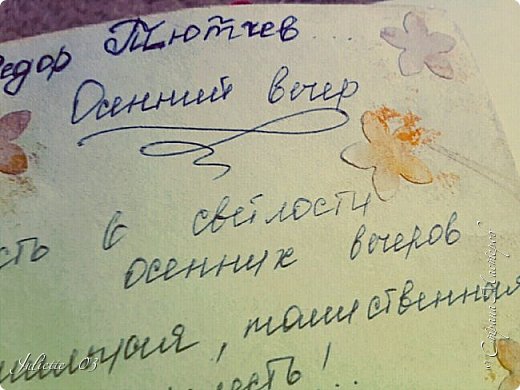 едор Тютчев...
Осенний вечер
сть в светлости
осенних вечеров
мильная, таинственная
лесть!..
Juliette_03
"Страна Мастеров"